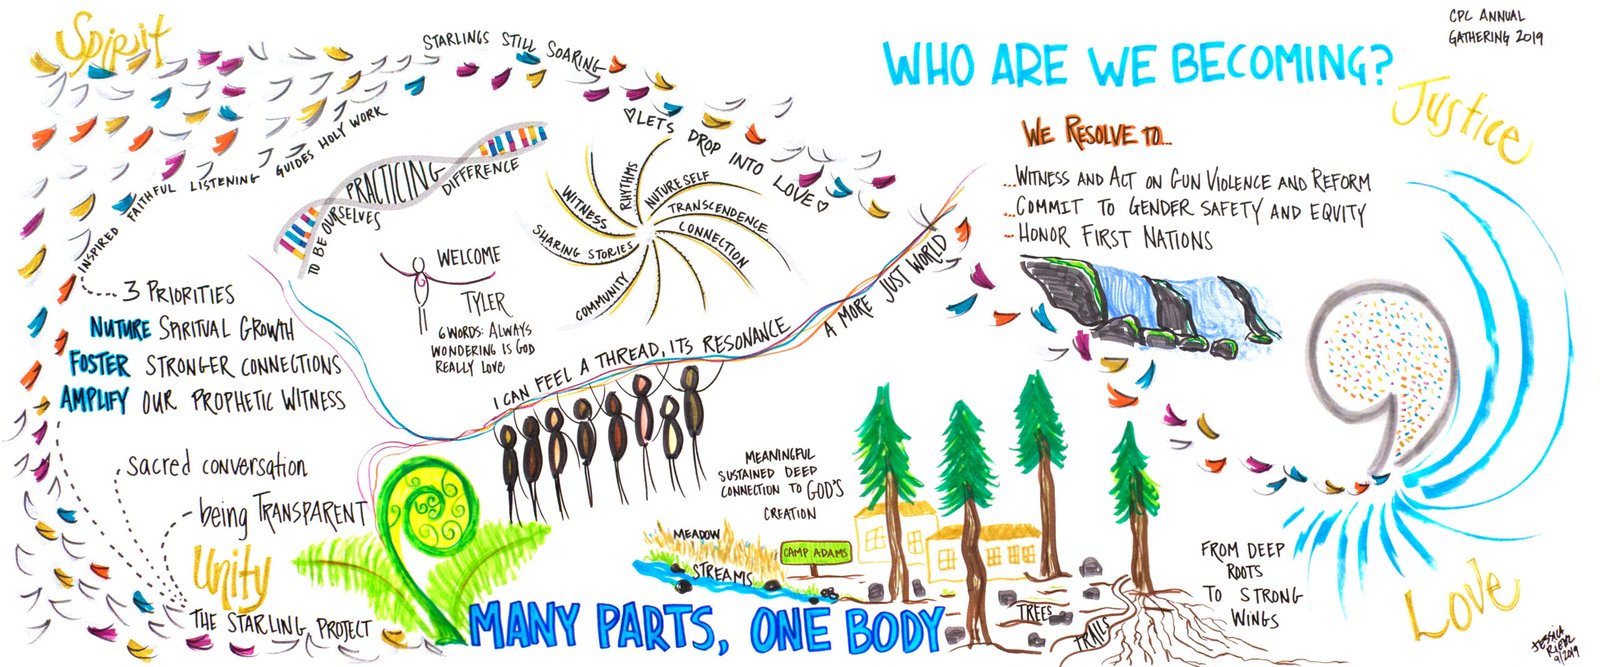 Spirit
STARLINGS STILL SOARING
WHO ARE WE BECOMING?
CPC ANNUAL
GATHERING 2019
Justice
INSPIRED FAITHFUL LISTENING GUIDES HOLY WORK
♡LETS DROP INTO LOVE♡
PRACTICING
DIFFERENCE
TO BE OURSELVES
RHYTHMS
NUTURE SELF
TRANSCENDENCE
CONNECTION
WITNESS
SHARING STORIES
COMMUNITY
WELCOME
TYLER
6 WORDS: ALWAYS
WONDERING IS GOD
REALLY LOVE
WE RESOLVE TO...
...WITNESS AND ACT ON GUN VIOLENCE AND REFORM
...COMMIT TO GENDER SAFETY AND EQUITY
... HONOR FIRST NATIONS
3 PRIORITIES
NUTURE SPIRITUAL GROWTH
FOSTER STRONGER CONNECTIONS
AMPLIFY OUR PROPHETIC WITNESS
I CAN FEEL A THREAD, ITS RESONANCE
A MORE JUST WORLD
sacred conversation
being TRANSPARENT
Unity
THE STARLING PROJECT
MEANINGFUL
SUSTAINED DEEP
CONNECTION TO GOD'S
CREATION
MEADOW
STREAMS
CAMP ADAMS
TREES
TRAILS
MANY PARTS, ONE BODY
FROM DEEP
ROOTS
TO STRONG
WINGS
LOVE
JESSICA
RIEHL
9/2019